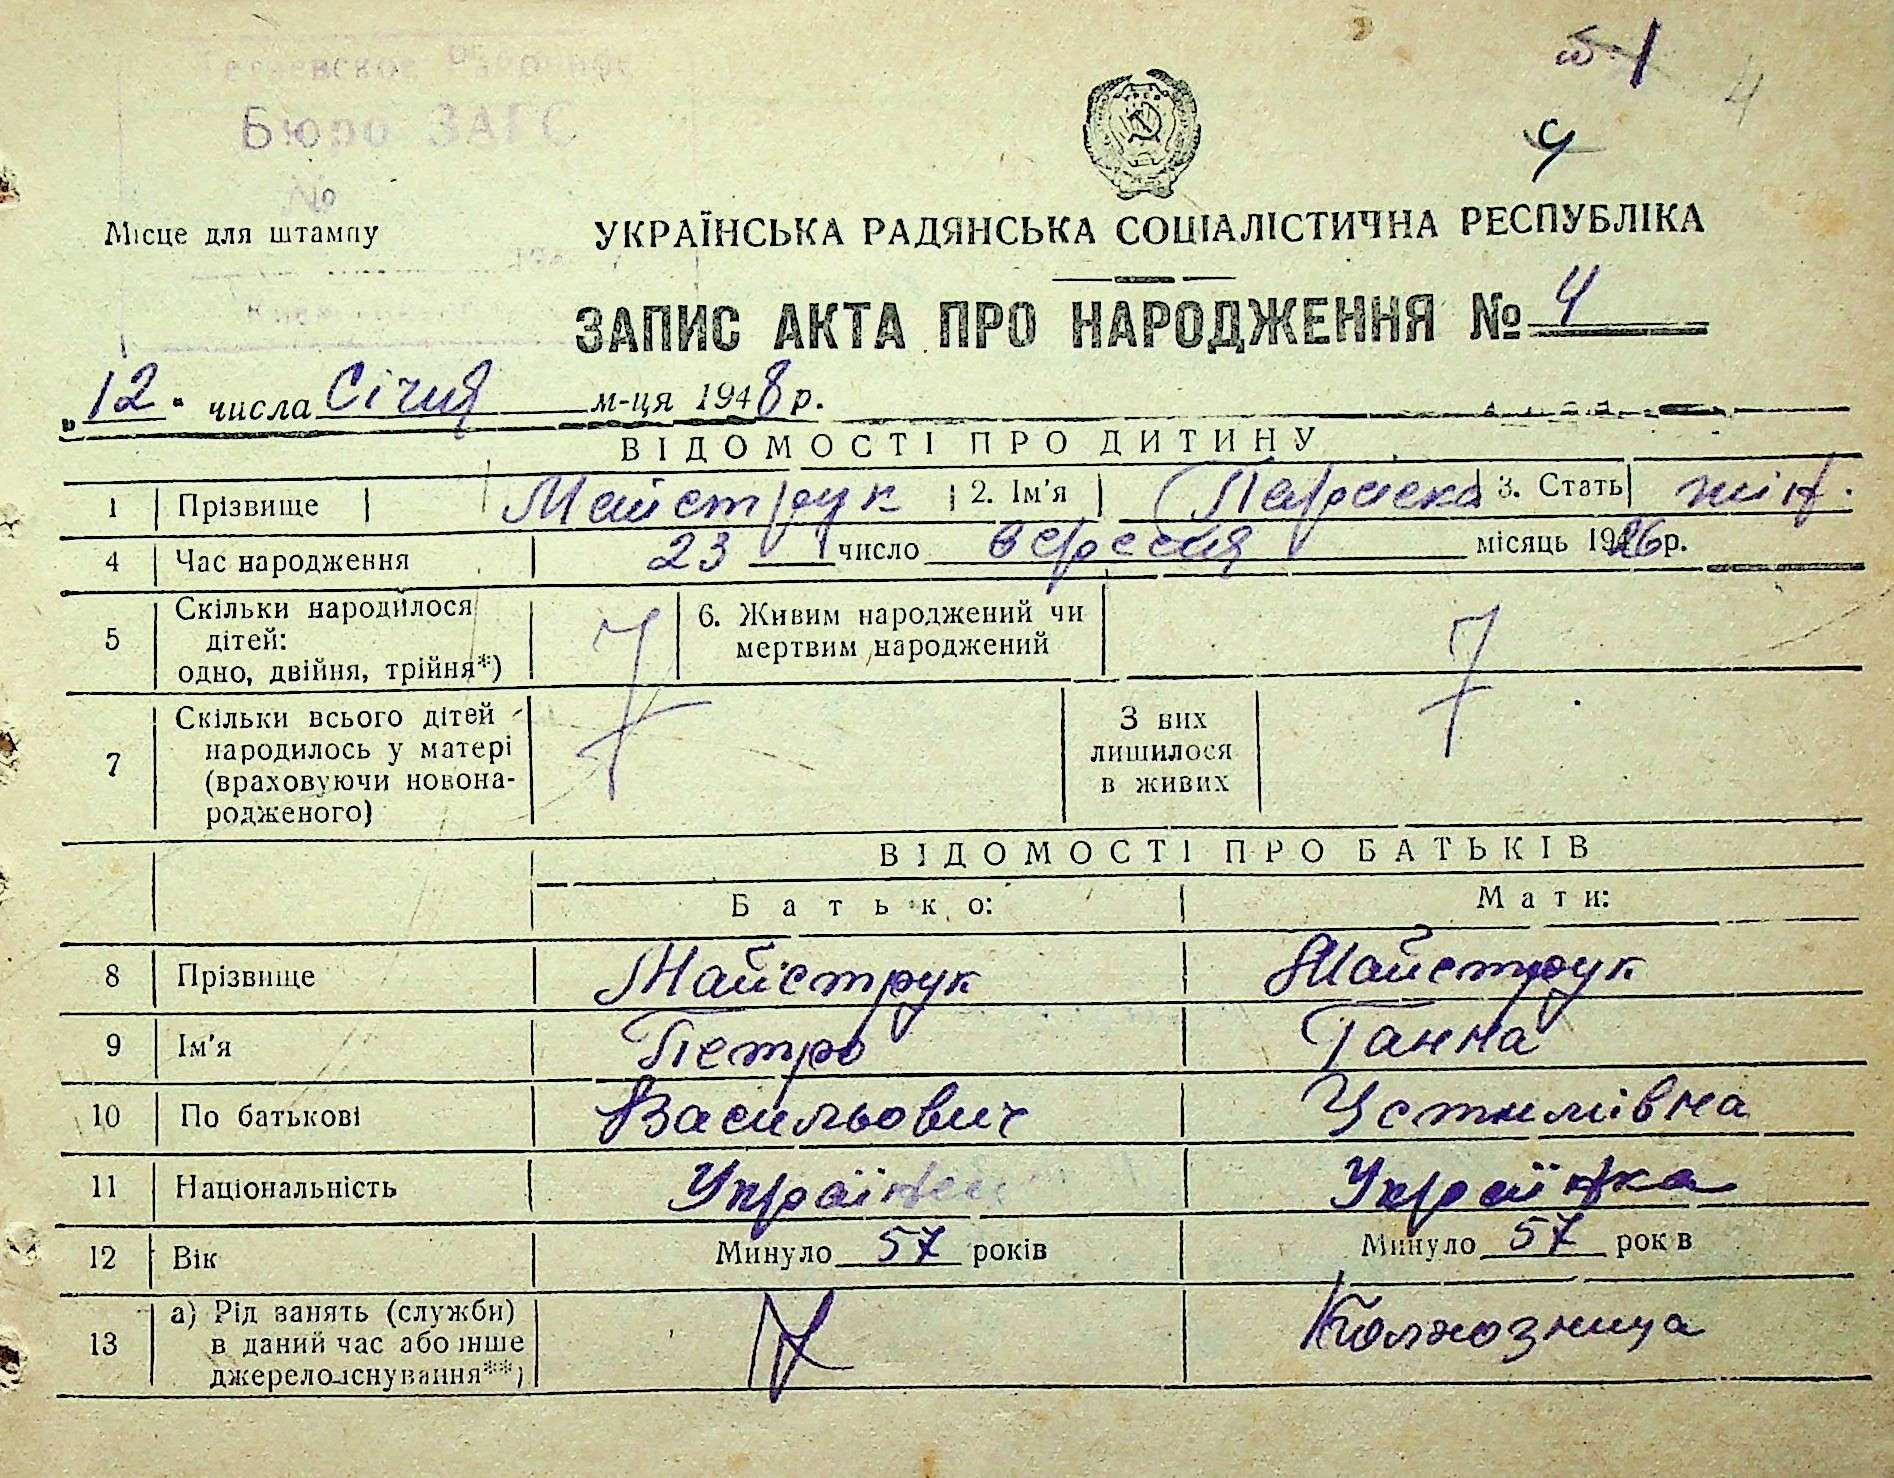 Бюро ЗАГС
№
4
4
Місце для штампу
УКРАЇНСЬКА РАДЯНСЬКА СОЦІАЛІСТИЧНА РЕСПУБЛІКА
ЗАПИС АКТА ПРО НАРОДЖЕННЯ № 4
„12“ числа Січня м-ця 1948 р.
ВІДОМОСТІ ПРО ДИТИНУ
1 Прізвище Майструк 2. Ім'я Параска 3. Стать жін.
4 Час народження 23 число вересня місяць 1926 р.
5 Скільки народилося дітей: одно, двійня, трійня*) 6. Живим народжений чи мертвим народжений
7 Скільки всього дітей народилось у матері (враховуючи новонародженого) З них лишилося в живих
ВІДОМОСТІ ПРО БАТЬКІВ
Батько: Мати:
8 Прізвище Майструк Майструк
9 Ім'я Петро Ганна
10 По батькові Васильович Устимівна
11 Національність Українец Українка
12 Вік Минуло 57 років Минуло 57 років
13 а) Рід занять (служби) в даний час або інше джерело існування**) Колхозница